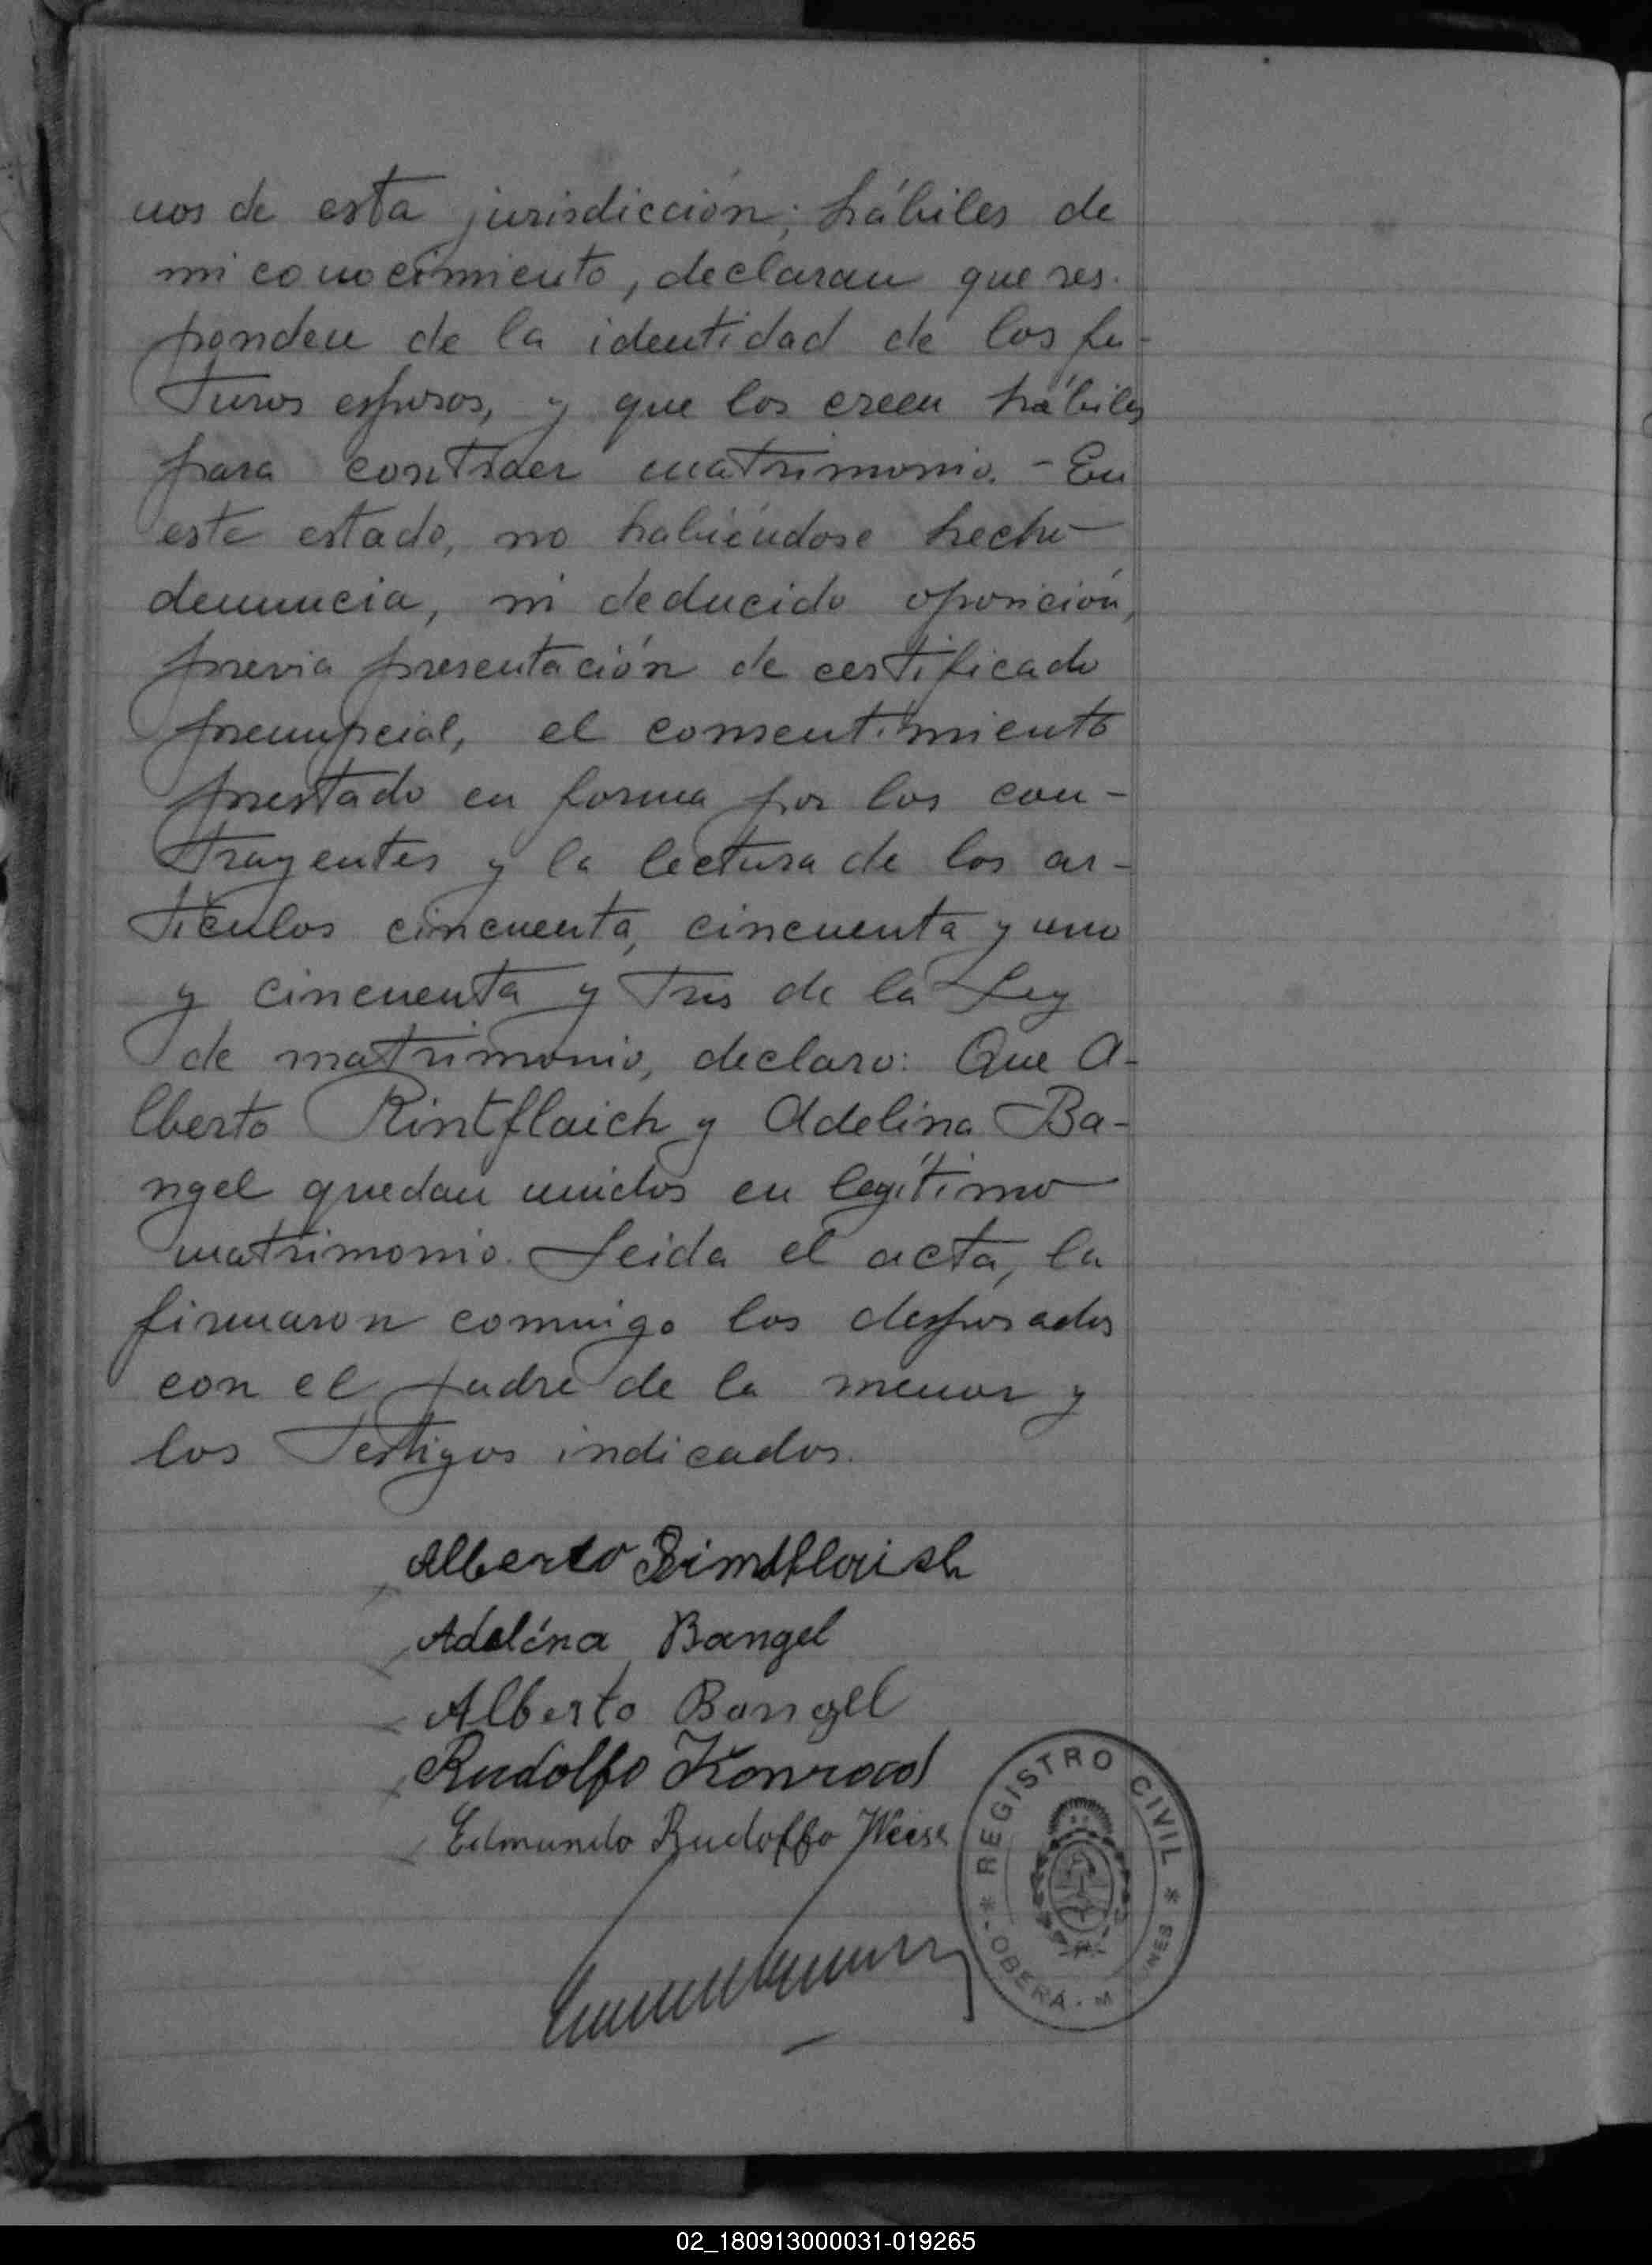 nos de esta jurisdicción; hábiles de
mi conocimiento, declaran que res-
ponden de la identidad de los fu-
turos esposos, y que los creen hábiles
para contraer matrimonio. - En
este estado, no habiéndose hecho
denuncia, ni deducido oposición,
previa presentación de certificado
prenupcial, el consentimiento
prestado en forma por los con-
trayentes y la lectura de los ar-
tículos cincuenta, cincuenta y uno
y cincuenta y tres de la Ley
de matrimonio, declaro: Que A-
lberto Rintflaich y Adelina Ba-
ngel quedan unidos en legítimo
matrimonio. Leida el acta, la
firmaron conmigo los desposados
con el padre de la menor y
los Testigos indicados.
Alberto Rintflaish
Adelina Bangel
Alberto Bangel
Rudolfo Konrad
Edmundo Rudolfo Weise
REGISTRO CIVIL
OBERA
02_180913000031-019265